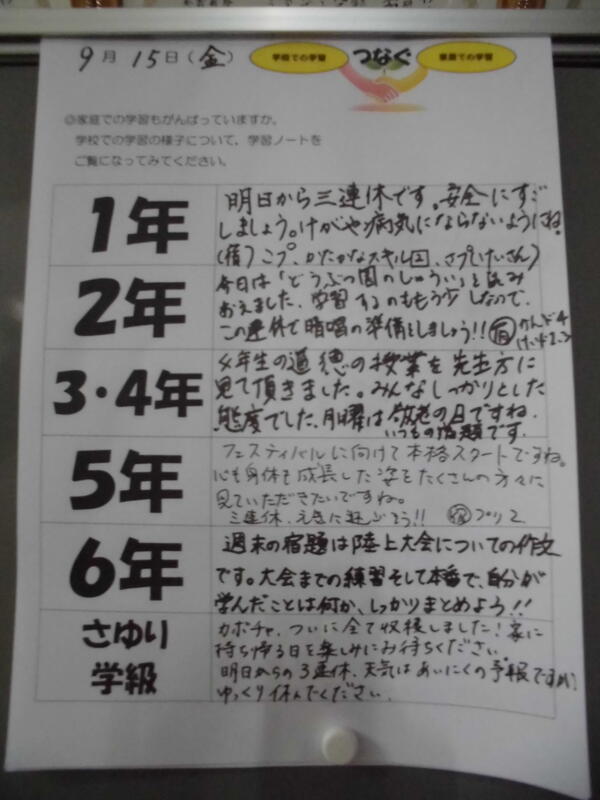 9月 15日(金)
学校での学習
つなぐ
家庭での学習
◎家庭での学習もがんばっていますか。
学校での学習の様子について、学習ノートを
ご覧になってみてください。
1年
明日から三連休です。安全にすご
しましょう。けがや病気にならないようにね。
(宿)こプ、かたかなスキル
2年
今日は「どうぶつ園のじゅうい」を読み
おえました。学習するのももう少しなので、
この連休で暗唱の準備をしましょう!!
宿
3・4年
4年生の道徳の授業を先生方に
見て頂きました。みんなしっかりとした
態度でした。月曜は敬老の日ですね。
いつもの宿題です。
5年
フェスティバルに向けて本格スタートですね。
心も身体も成長した姿をたくさんの方々に
見ていただきたいですね。
三連休、 !! 宿プリ2
6年
週末の宿題は陸上大会についての作文
です。大会までの練習そして本番で、自分が
学んだことは何か、しっかりまとめよう!!
さゆり
学級
カボチャ、ついに全て収穫しました!家に
持ち帰る日を楽しみにお待ちください。
明日からの3連休、天気はあいにくの予報ですが、
ゆっくり休んでください。